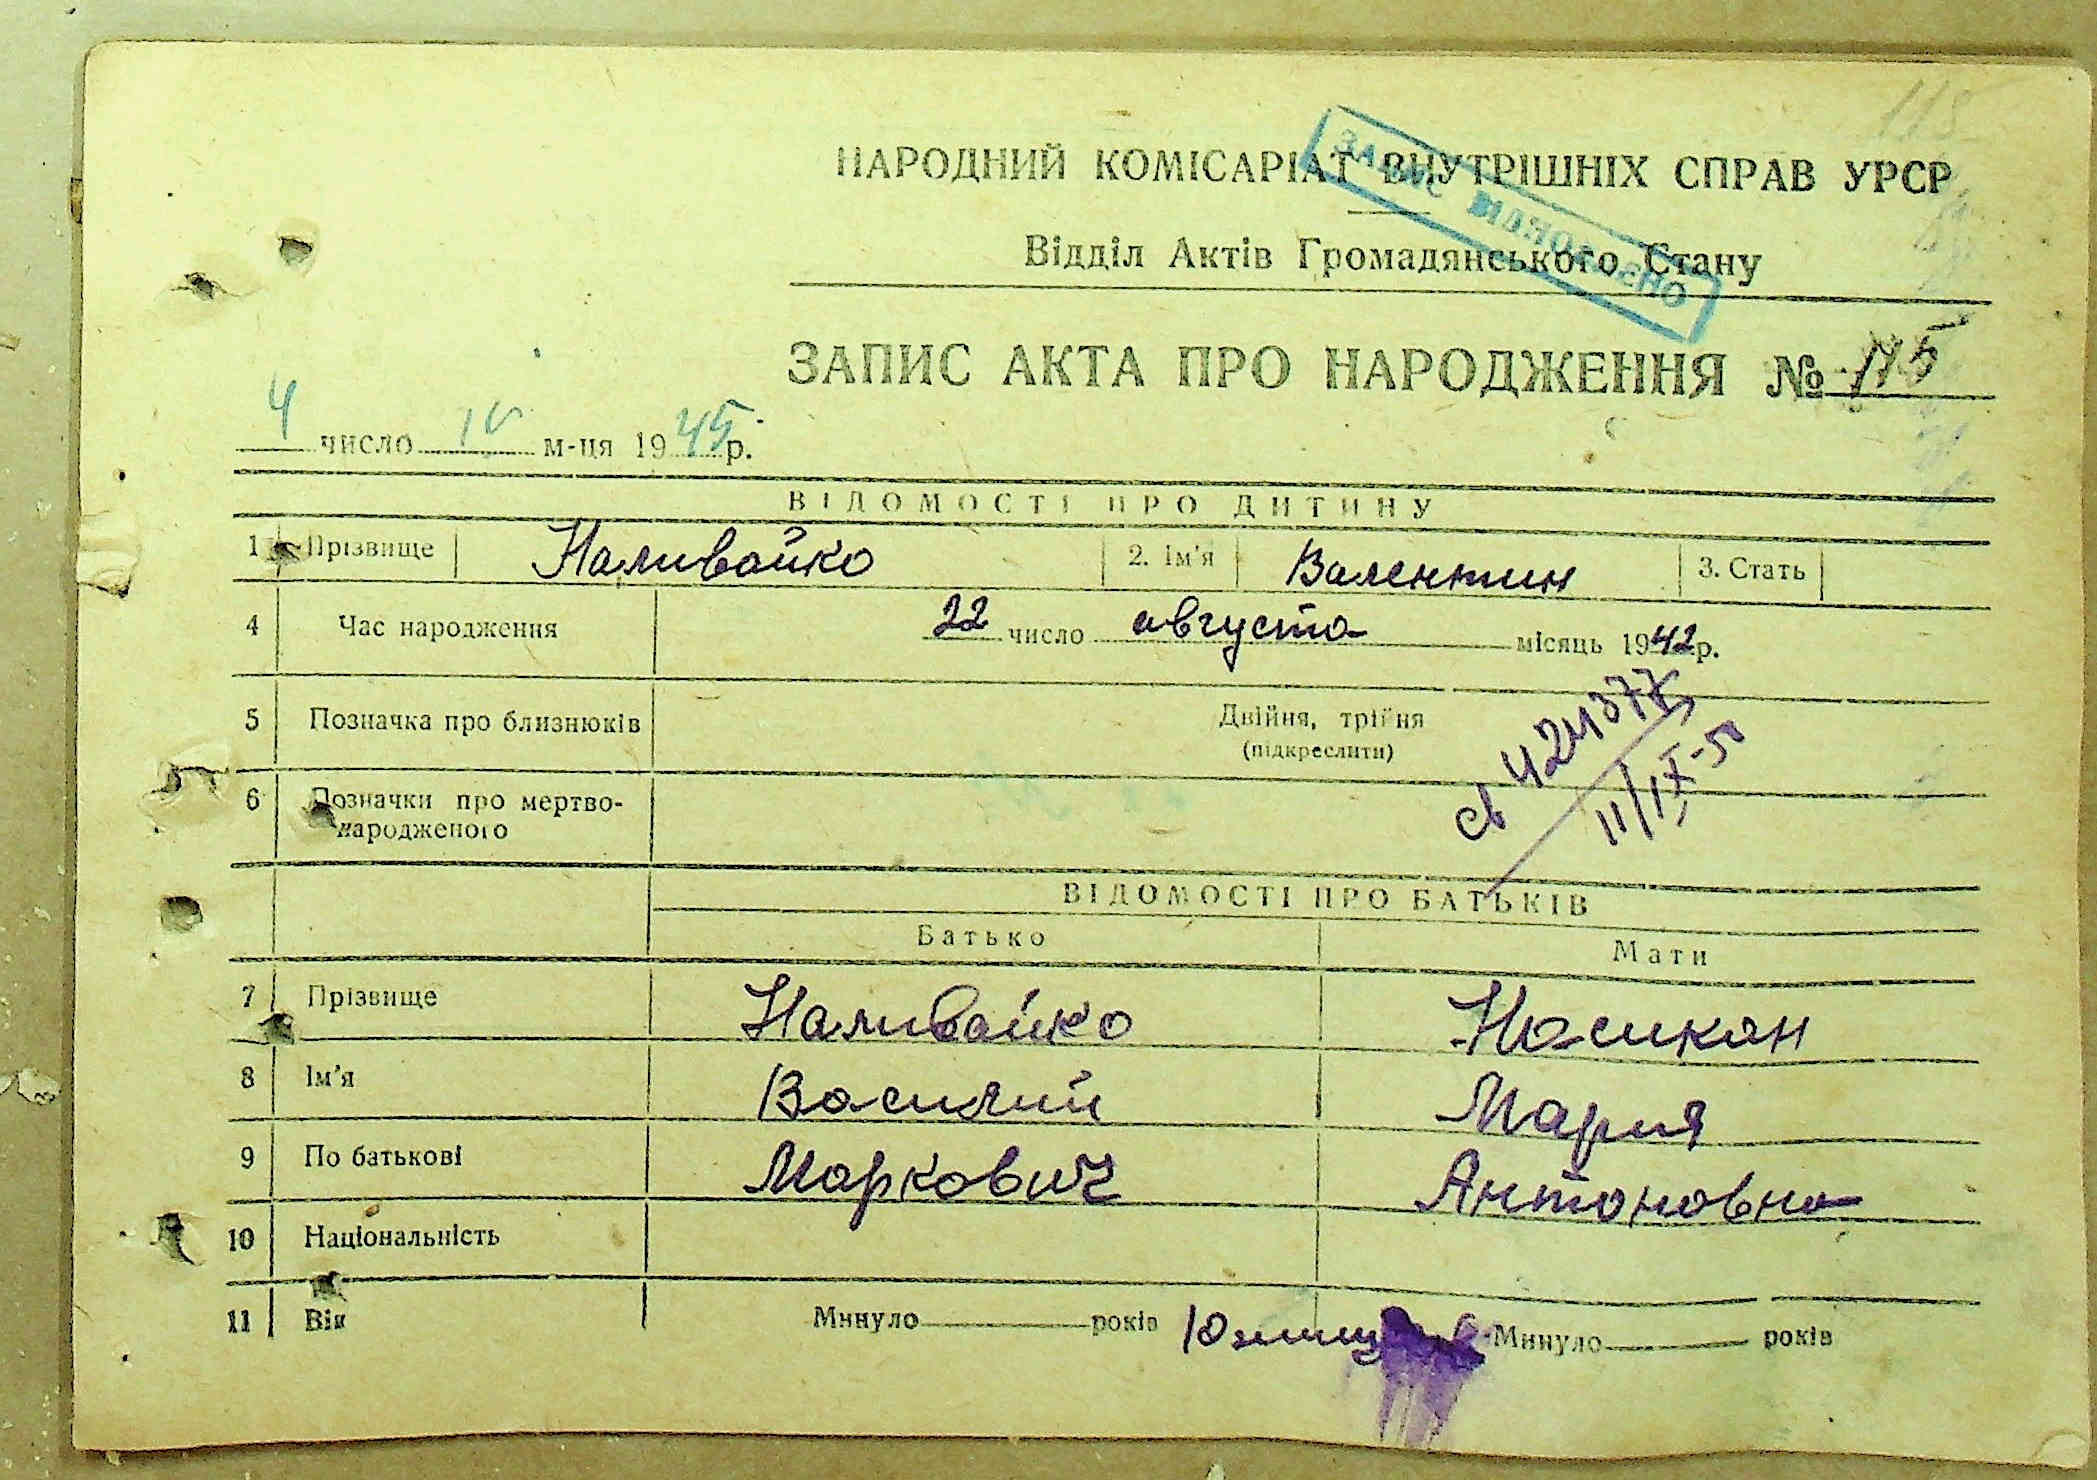 115
НАРОДНИЙ КОМІСАРІАТ ВНУТРІШНІХ СПРАВ УРСР
ЗАПИС ВІДНОВЛЕНО
Відділ Актів Громадянського Стану
ЗАПИС АКТА ПРО НАРОДЖЕННЯ № 115
4 число IV м-ця 1945 р.
ВІДОМОСТІ ПРО ДИТИНУ
1 Прізвище Наливайко 2. Ім'я Валентин 3. Стать
4 Час народження 22 число августа місяць 1942 р.
5 Позначка про близнюків Двійня, трійня
(підкреслити)
св 424377
11/IX-50
6 Позначки про мертво-
народженого
ВІДОМОСТІ ПРО БАТЬКІВ
Батько Мати
7 Прізвище Наливайко Носикан
8 Ім'я Василий Мария
9 По батькові Маркович Антоновна
10 Національність
11 Вік Минуло років Минуло років